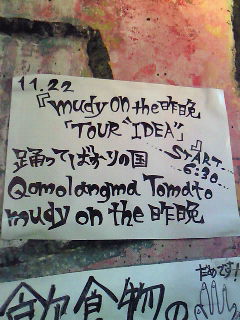 11.22
『mudy on the 昨晩
「TOUR "IDEA"」』
START
6:30
踊ってばかりの国
Qomolangma Tomato
mudy on the 昨晩
だめです!
飲食物の